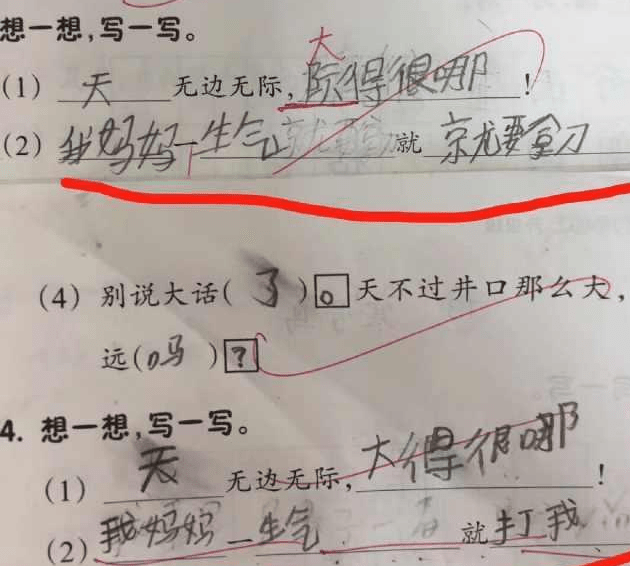 想一想,写一写。
大
(1) 天 无边无际,际得很哪!
(2) 我妈妈一生气就 就要拿刀
(4) 别说大话(了)。天不过井口那么大,
远(吗)?
4. 想一想,写一写。
(1) 天 无边无际,大得很哪!
(2) 我妈妈一生气 就打我